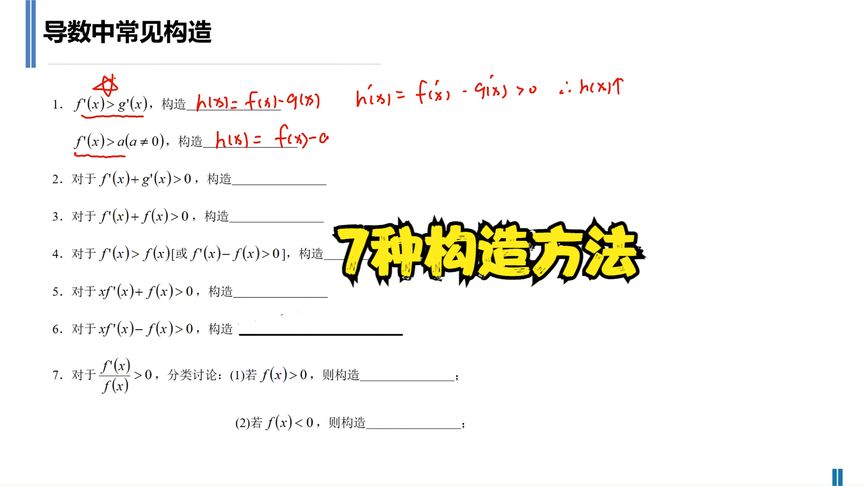 导数中常见构造
1. f'(x)>g'(x),构造 h(x)=f(x)-g(x) h'(x)=f'(x)-g'(x)>0 ∴h(x)↑
f'(x)>a(a≠0),构造 h(x)=f(x)-a
2. 对于 f'(x)+g'(x)>0,构造________
3. 对于 f'(x)+f(x)>0,构造________
4. 对于 f'(x)>f(x)[或 f'(x)-f(x)>0],构造________
7种构造方法
5. 对于 xf'(x)+f(x)>0,构造________
6. 对于 xf'(x)-f(x)>0,构造________
7. 对于 f'(x)/f(x)>0,分类讨论:(1)若 f(x)>0,则构造________;
(2)若 f(x)<0,则构造________;